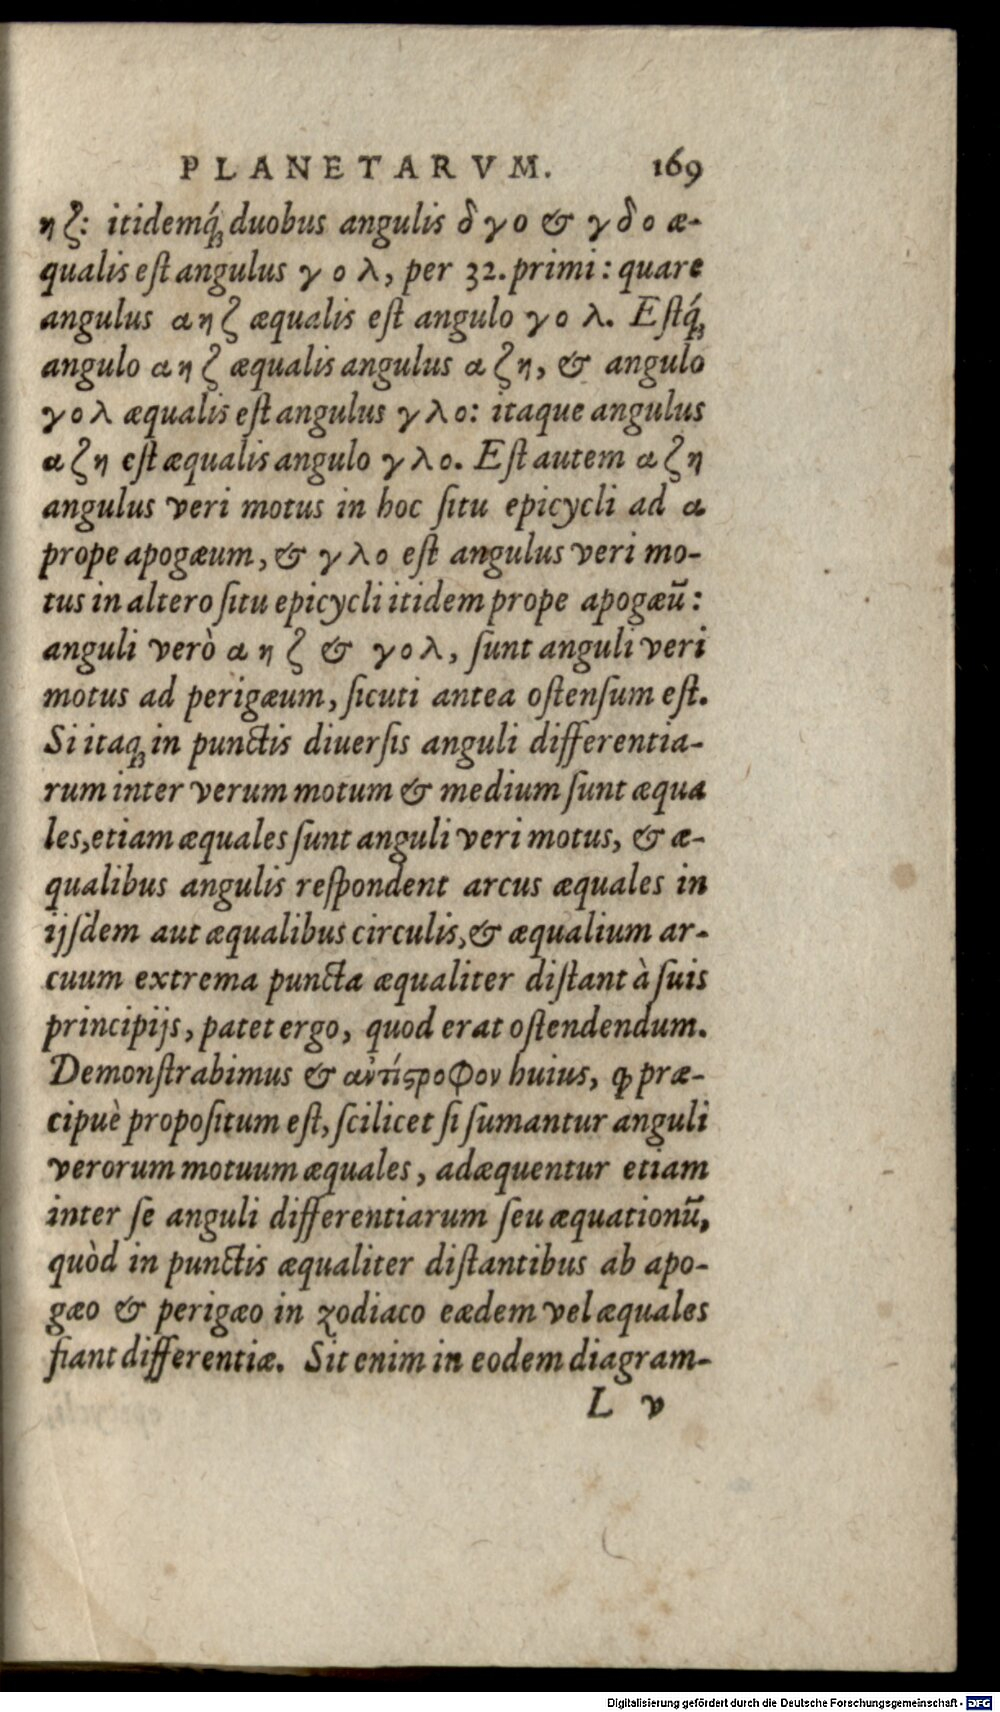 PLANETARVM. 169
η ζ: itidemq́ꝫ duobus angulis δ γ ο & γ δ ο æ-
qualis eſt angulus γ ο λ, per 32. primi: quare
angulus α η ζ æqualis eſt angulo γ ο λ. Eſtq́ꝫ
angulo α η ζ æqualis angulus α ζ η, & angulo
γ ο λ æqualis eſt angulus γ λ ο: itaque angulus
α ζ η eſt æqualis angulo γ λ ο. Eſt autem α ζ η
angulus veri motus in hoc ſitu epicycli ad α
prope apogæum, & γ λ ο eſt angulus veri mo-
tus in altero ſitu epicycli itidem prope apogæũ:
anguli verò α η ζ & γ ο λ, ſunt anguli veri
motus ad perigæum, ſicuti antea oſtenſum eſt.
Si itaqꝫ in punctis diuerſis anguli differentia-
rum inter verum motum & medium ſunt æqua
les, etiam æquales ſunt anguli veri motus, & æ-
qualibus angulis reſpondent arcus æquales in
ijſdem aut æqualibus circulis, & æqualium ar-
cuum extrema puncta æqualiter diſtant à ſuis
principijs, patet ergo, quod erat oſtendendum.
Demonſtrabimus & αὐτίϛροφον huius, ꝙ præ-
cipuè propoſitum eſt, ſcilicet ſi ſumantur anguli
verorum motuum æquales, adæquentur etiam
inter ſe anguli differentiarum ſeu æquationũ,
quòd in punctis æqualiter diſtantibus ab apo-
gæo & perigæo in zodiaco eædem vel æquales
fiant differentiæ. Sit enim in eodem diagram-
L v
Digitalisierung gefördert durch die Deutsche Forschungsgemeinschaft - DFG